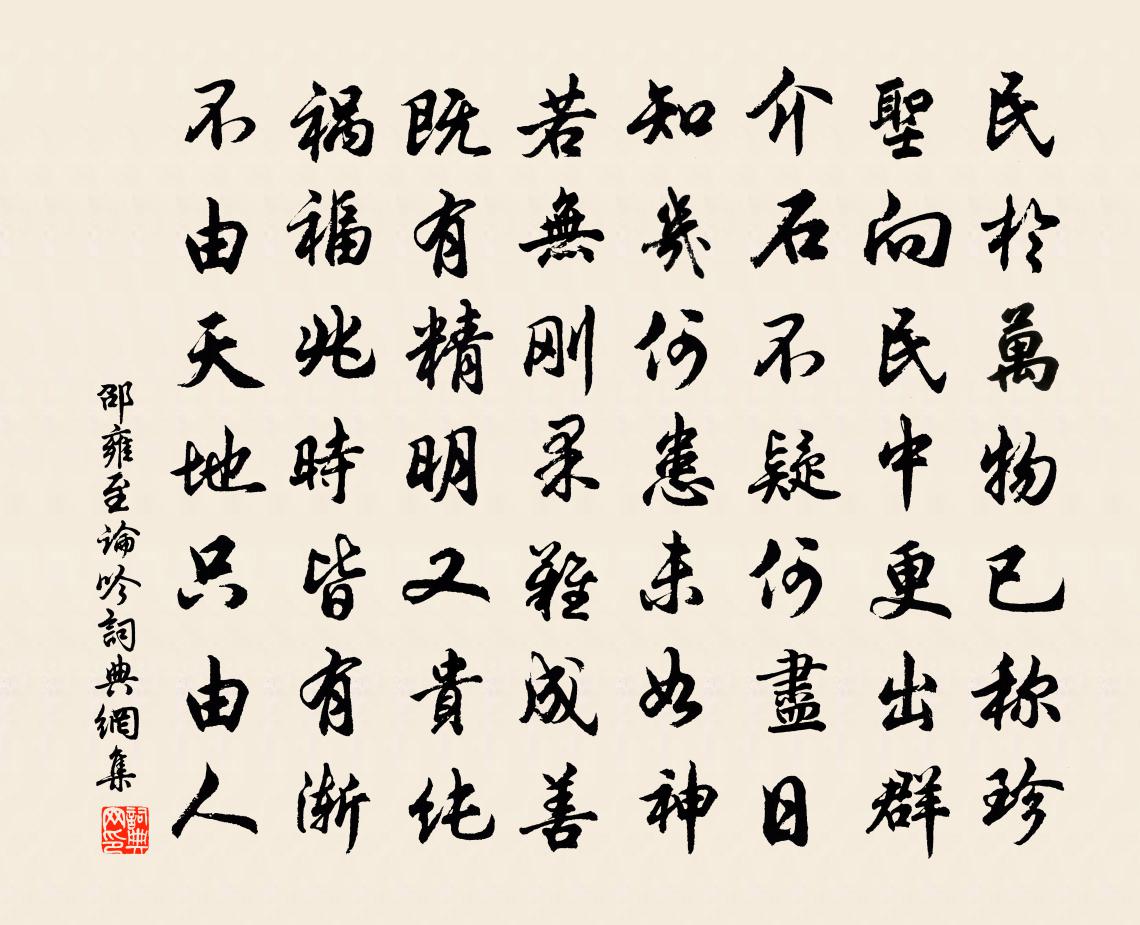 民於萬物已称珍
聖向民中更出群
介石不疑何盡日
知幾何患未如神
若無刚柔難成善
既有精明又貴纯
禍福兆時皆有漸
不由天地只由人
邵雍至論吟詞典網集
詞典网印